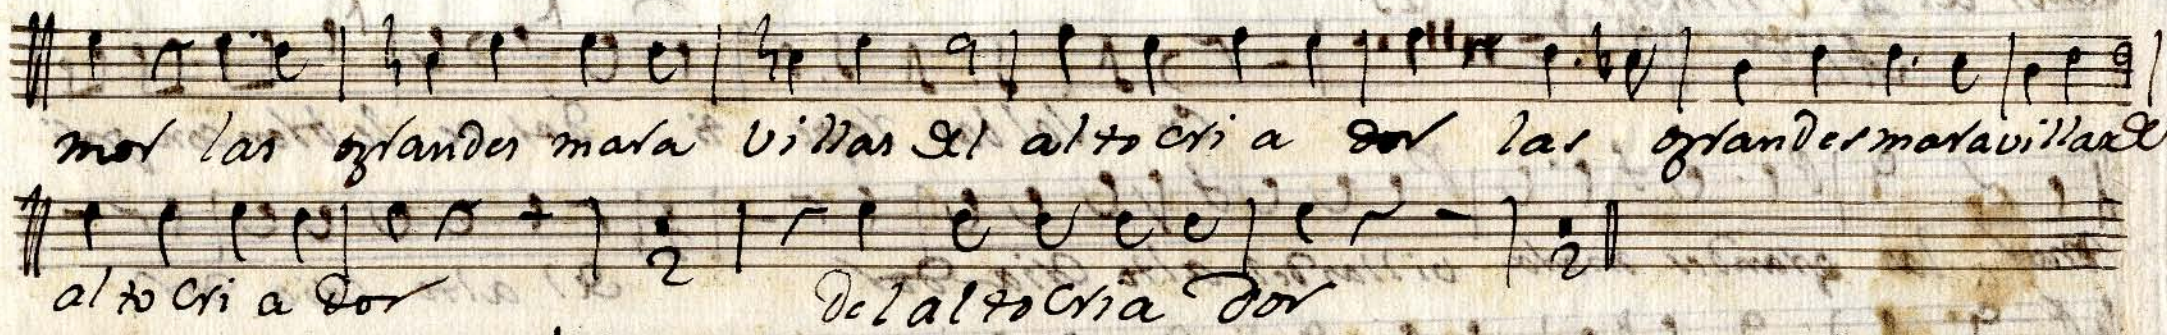 mor las grandes mara villas del alto cri a dor las grandes maravillas de
2 2
alto cri a dor del alto cria dor